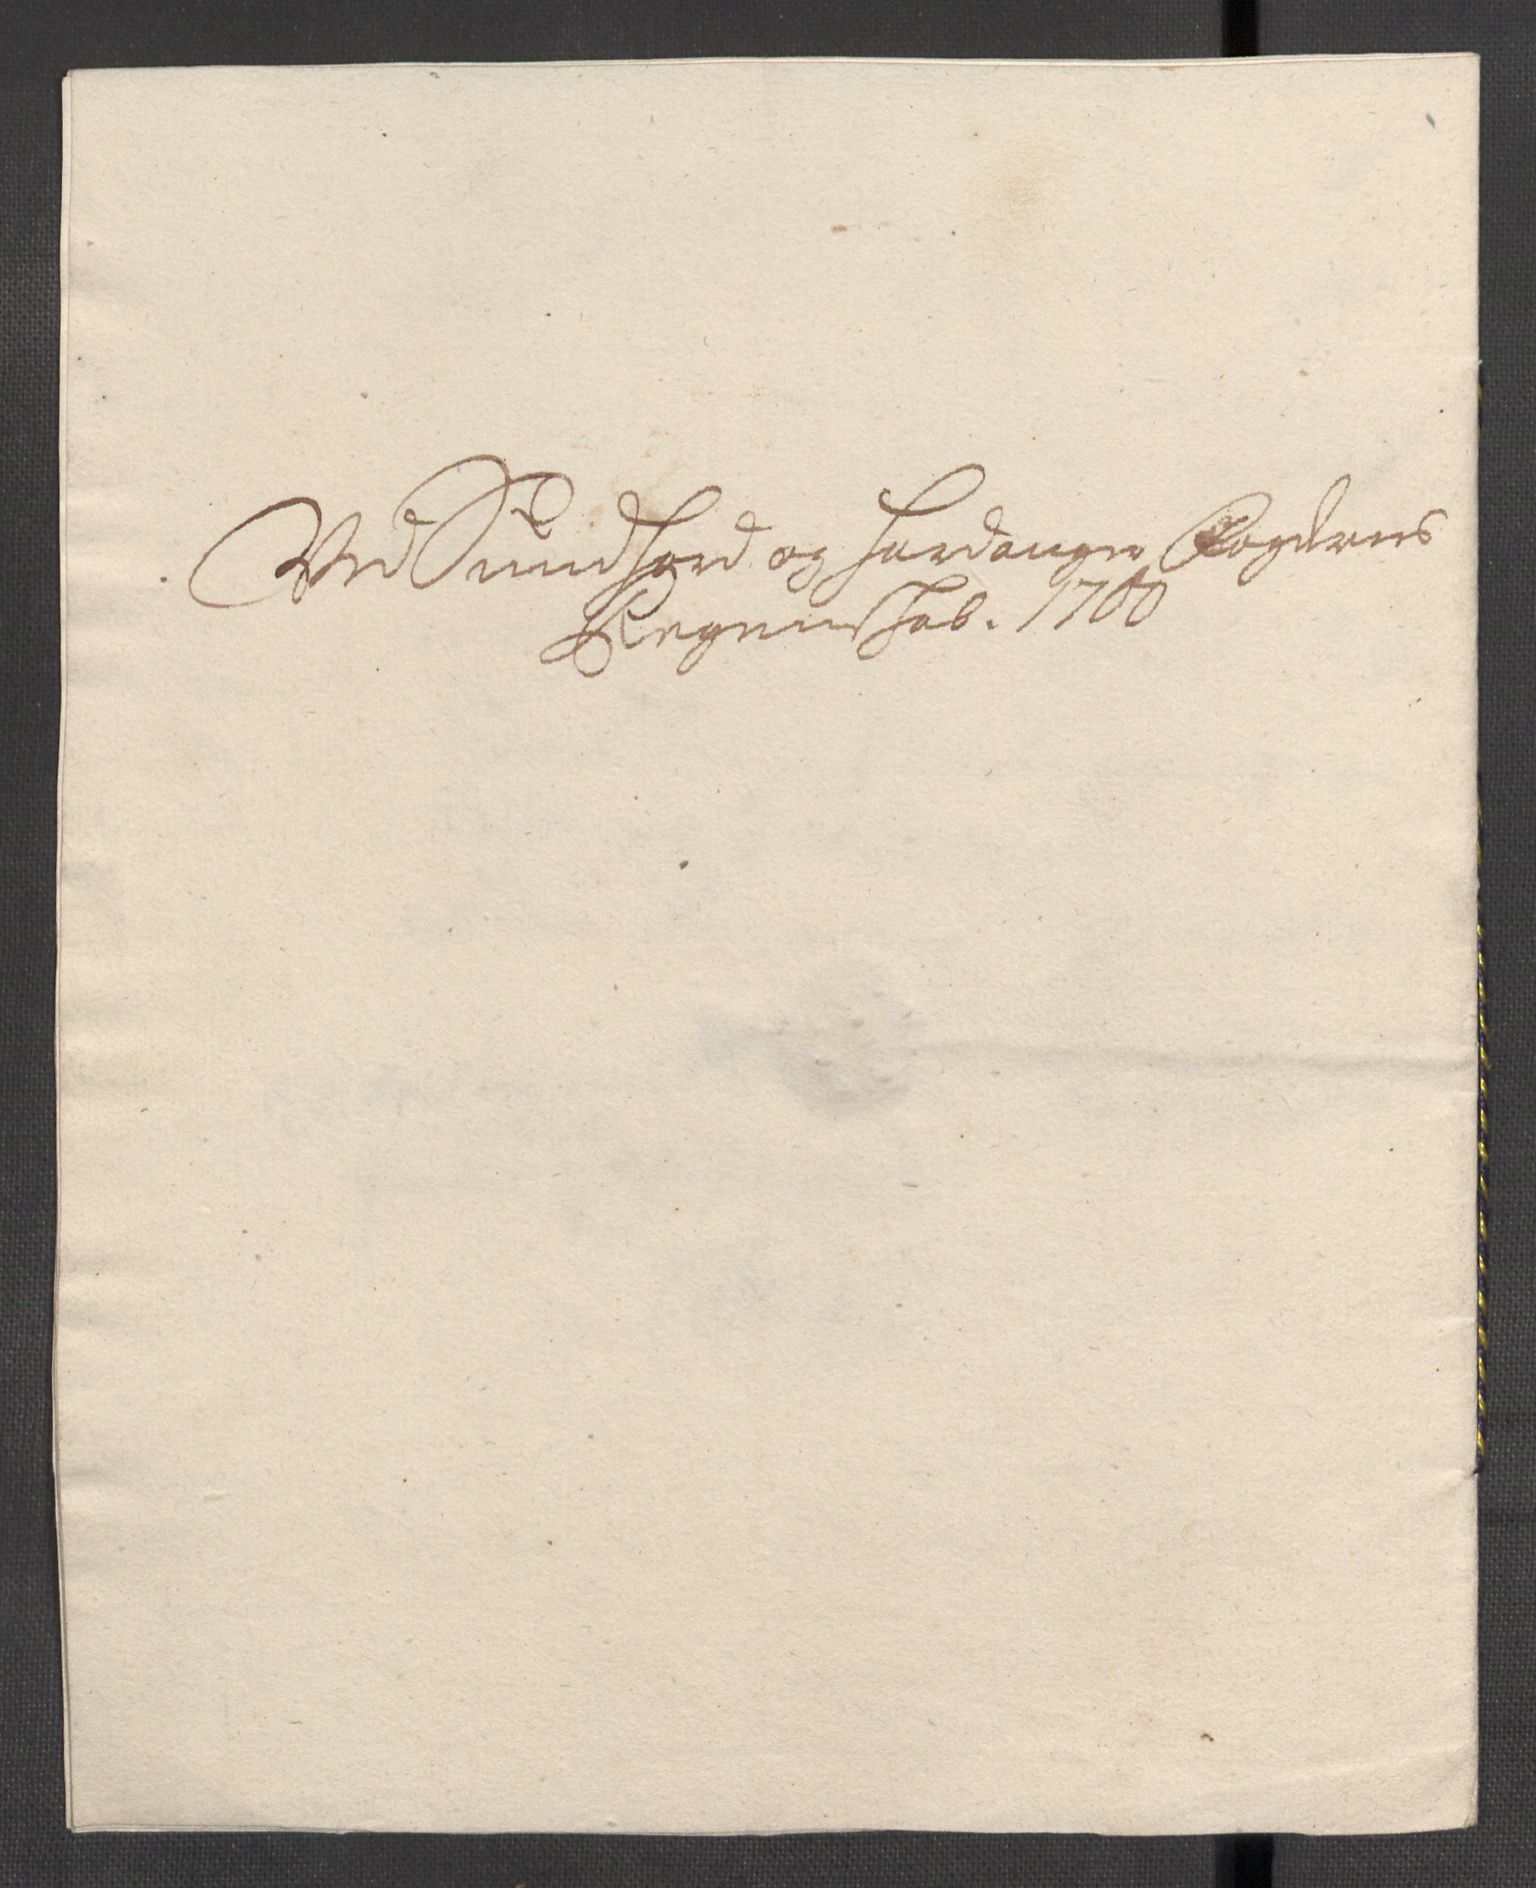 Ved Sundhord og Hardanger Fogderies
Regenskab. 1700